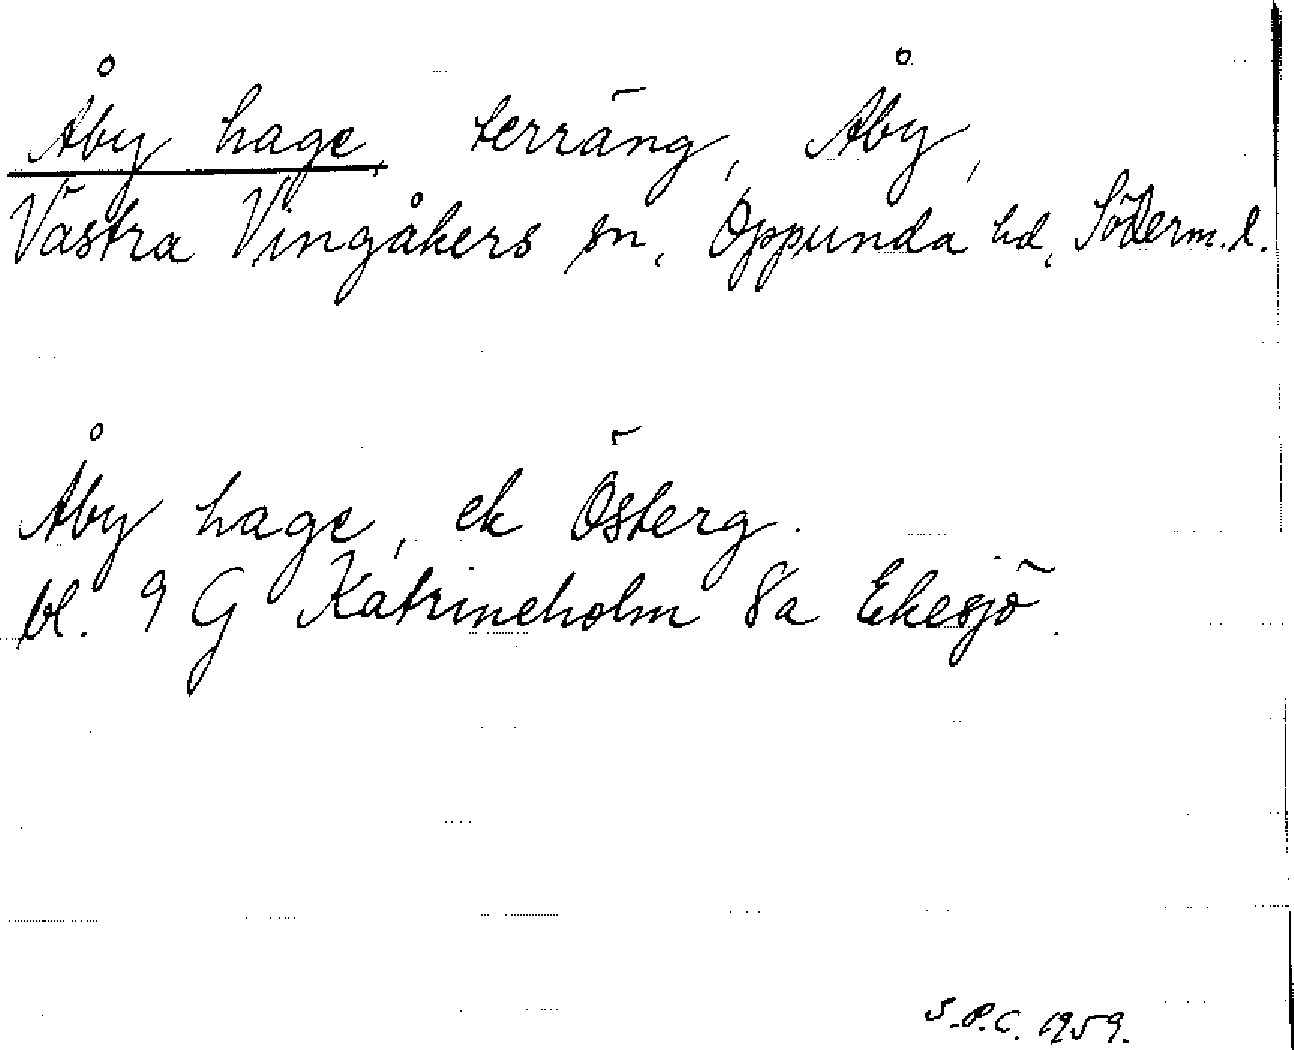 Åby hage, terräng, Åby,
Västra Vingåkers sn, Oppunda hd, Söderm. l.
Åby hage, ek Österg.
bl. 9 G Katrineholm 8a Ekesjö.
S.P.C. 1959.